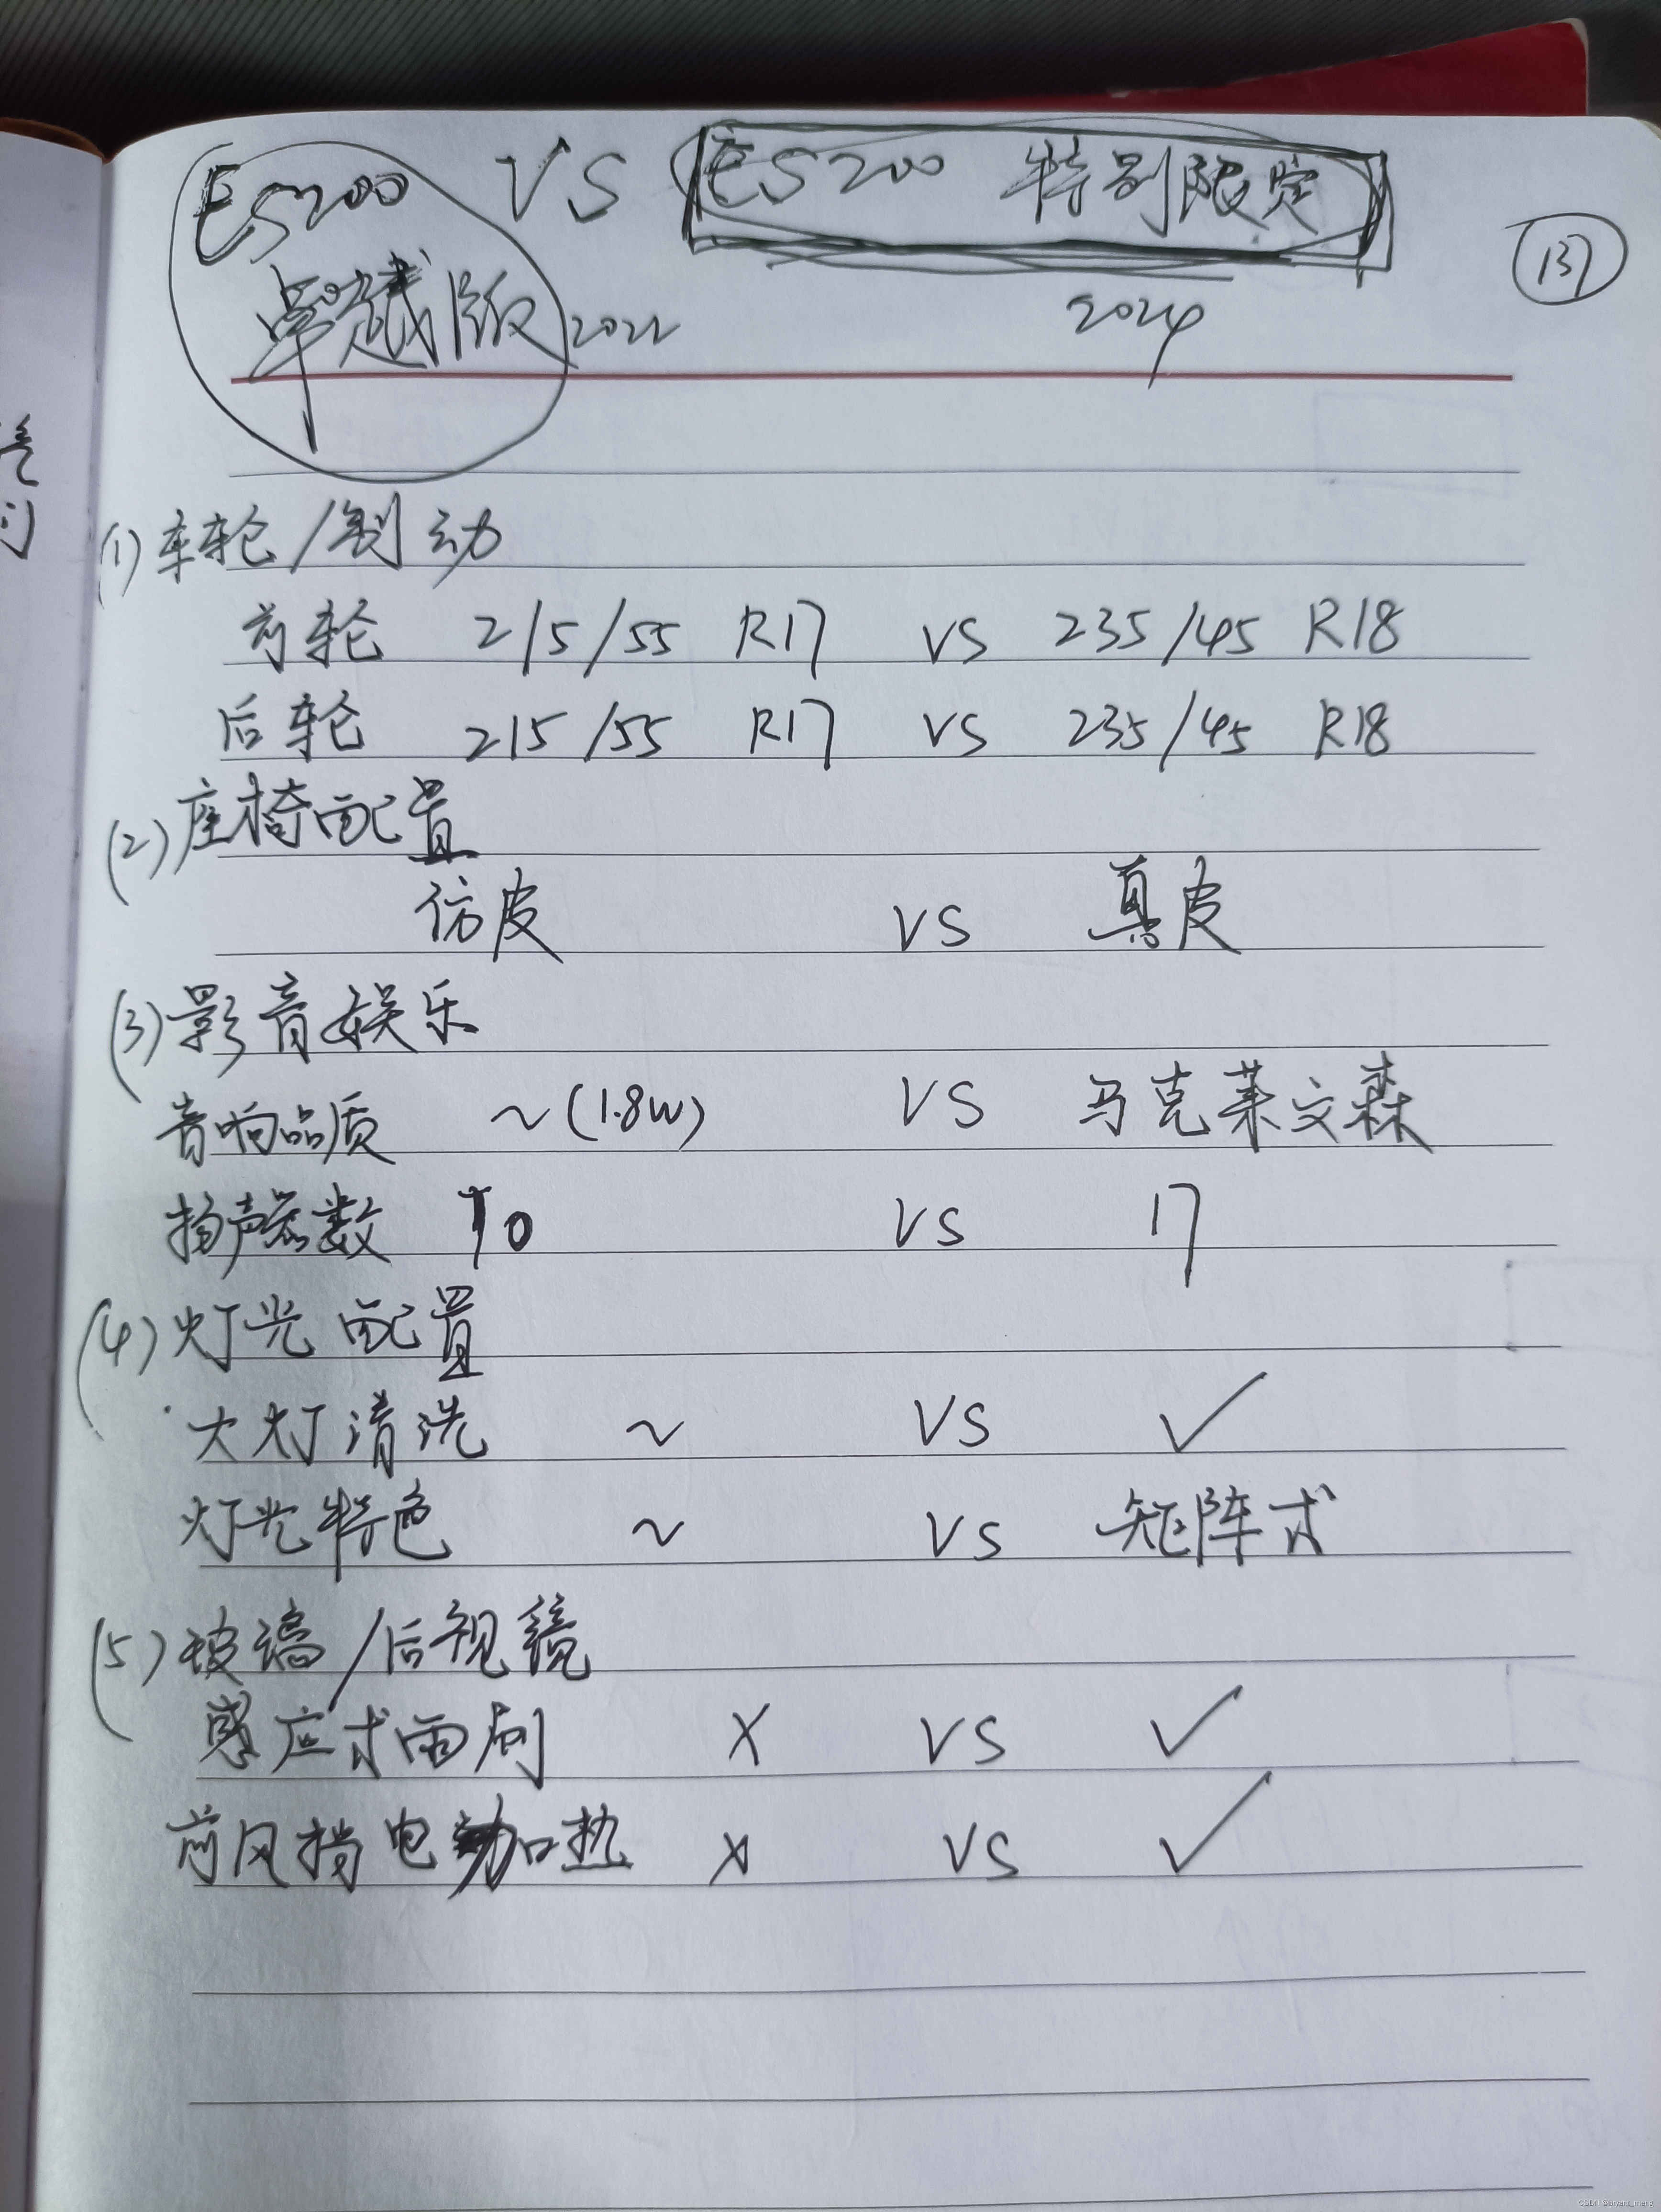 ES200 VS ES200 特别限定
137
卓越版 2022 2024
(1) 车轮/制动
前轮 215/55 R17 VS 235/45 R18
后轮 215/55 R17 VS 235/45 R18
(2) 座椅配置
仿皮 VS 真皮
(3) 影音娱乐
音响品质 ~(1.8W) VS 马克莱文森
扬声器数 10 VS 17
(4) 灯光配置
大灯清洗 ~ VS ✓
灯光特色 ~ VS 矩阵式
(5) 玻璃/后视镜
感应式雨刷 X VS ✓
前风挡电动加热 X VS ✓